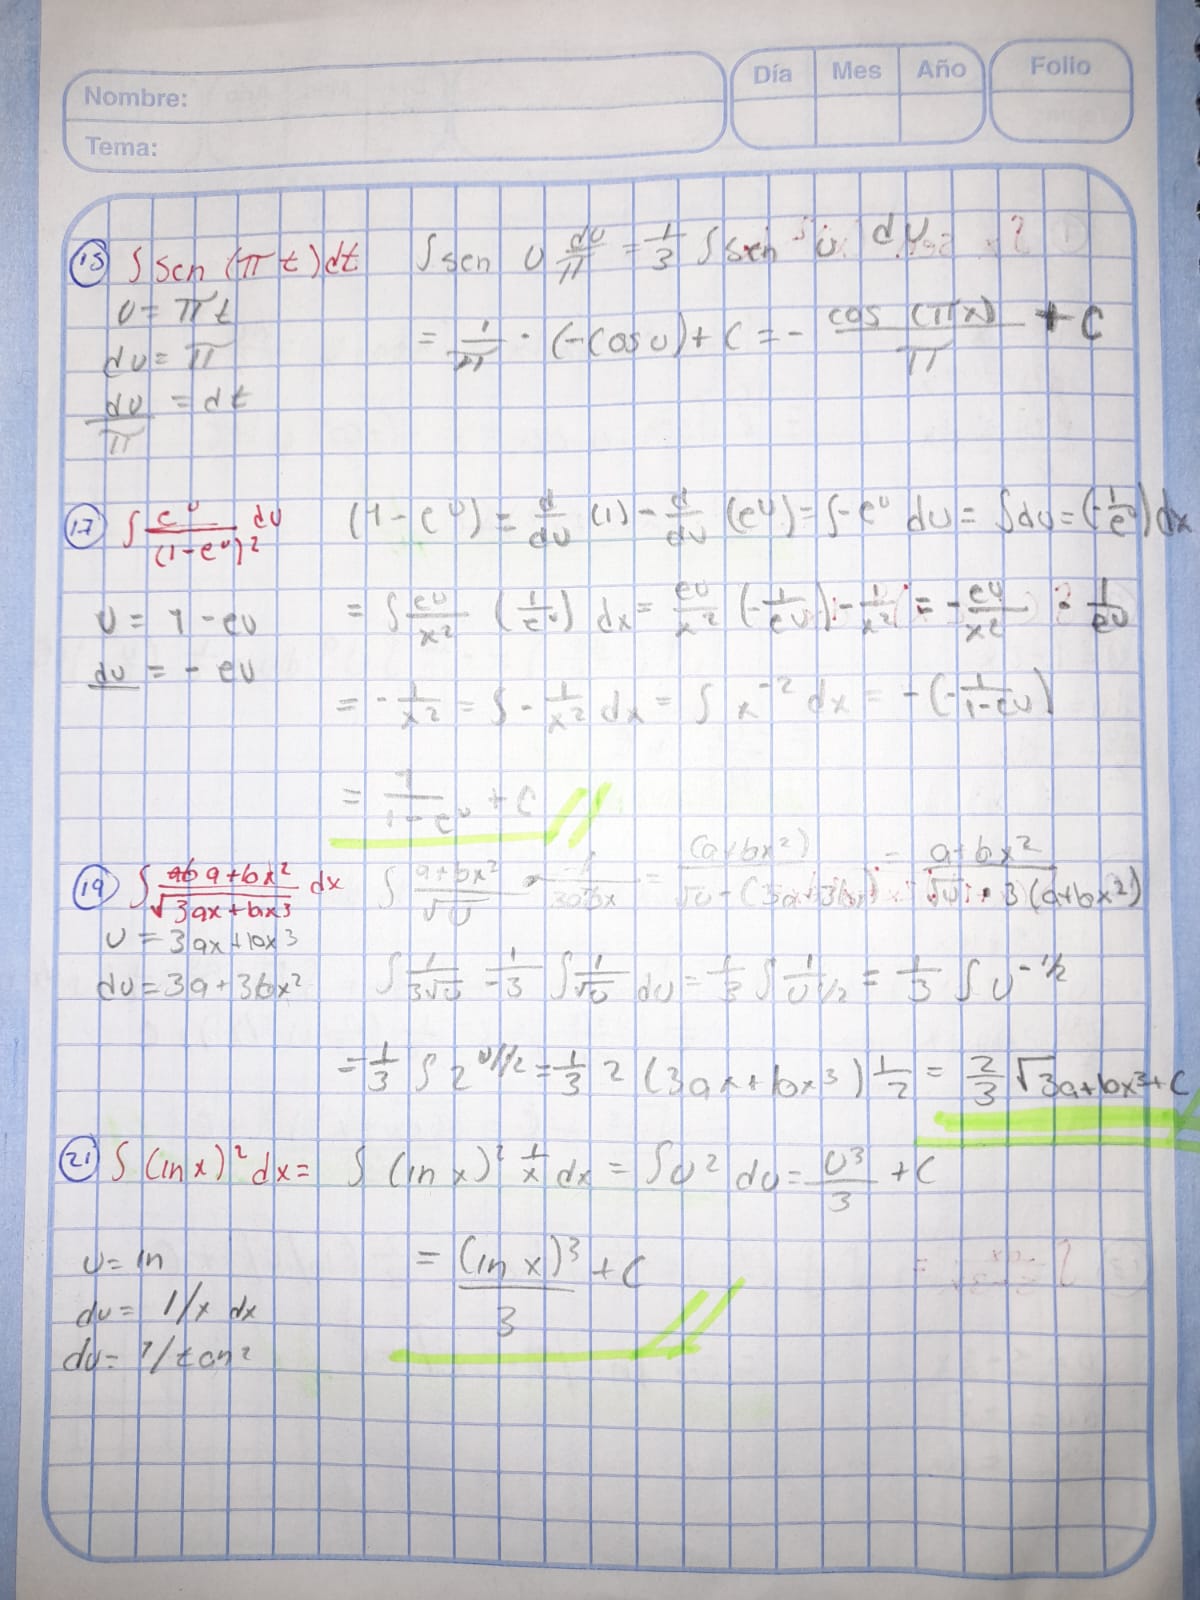 Nombre:
Tema:
Día Mes Año Folio
15 ∫ sen (π t) dt ∫ sen u du/π = 1/3 ∫ sen u du
u = πt
du = π
du/π = dt
= 1/π · (-cos u) + C = - cos (πx)/π + C
17 ∫ e^u/(1-e^u)² du (1 - e^u) = d/du (1) - d/du (e^u) = ∫-e^u du = ∫du = (-1/e^u) dx
u = 1 - eu
du = - eu
= ∫ eu/x² (1/e^u) dx = eu/x² (-1/eu) - 1/x² = - eu/x² · 1/eu
= - 1/x² = ∫ - 1/x² dx = ∫ x^-2 dx = - (- 1/1-eu)
= 1/1-e^u + C
19 ∫ a+bx²/√3ax+bx3 dx ∫ a+bx²/√u = (a+bx²) = a+bx²/√u · 3(a+bx²)
u = 3ax+bx3
du = 3a+3bx²
∫ 1/3√u = 1/3 ∫ 1/√u du = 1/3 ∫ 1/u 1/2 = 1/3 ∫ u^-1/2
= 1/3 ∫ 2^u1/2 = 1/3 2 (3ax+bx³) 1/2 = 2/3 √3a+bx³+C
21 ∫ (ln x)² dx = ∫ (ln x)² 1/x dx = ∫u² du = u³/3 + C
u = ln
du = 1/x dx
= (ln x)³/3 + C